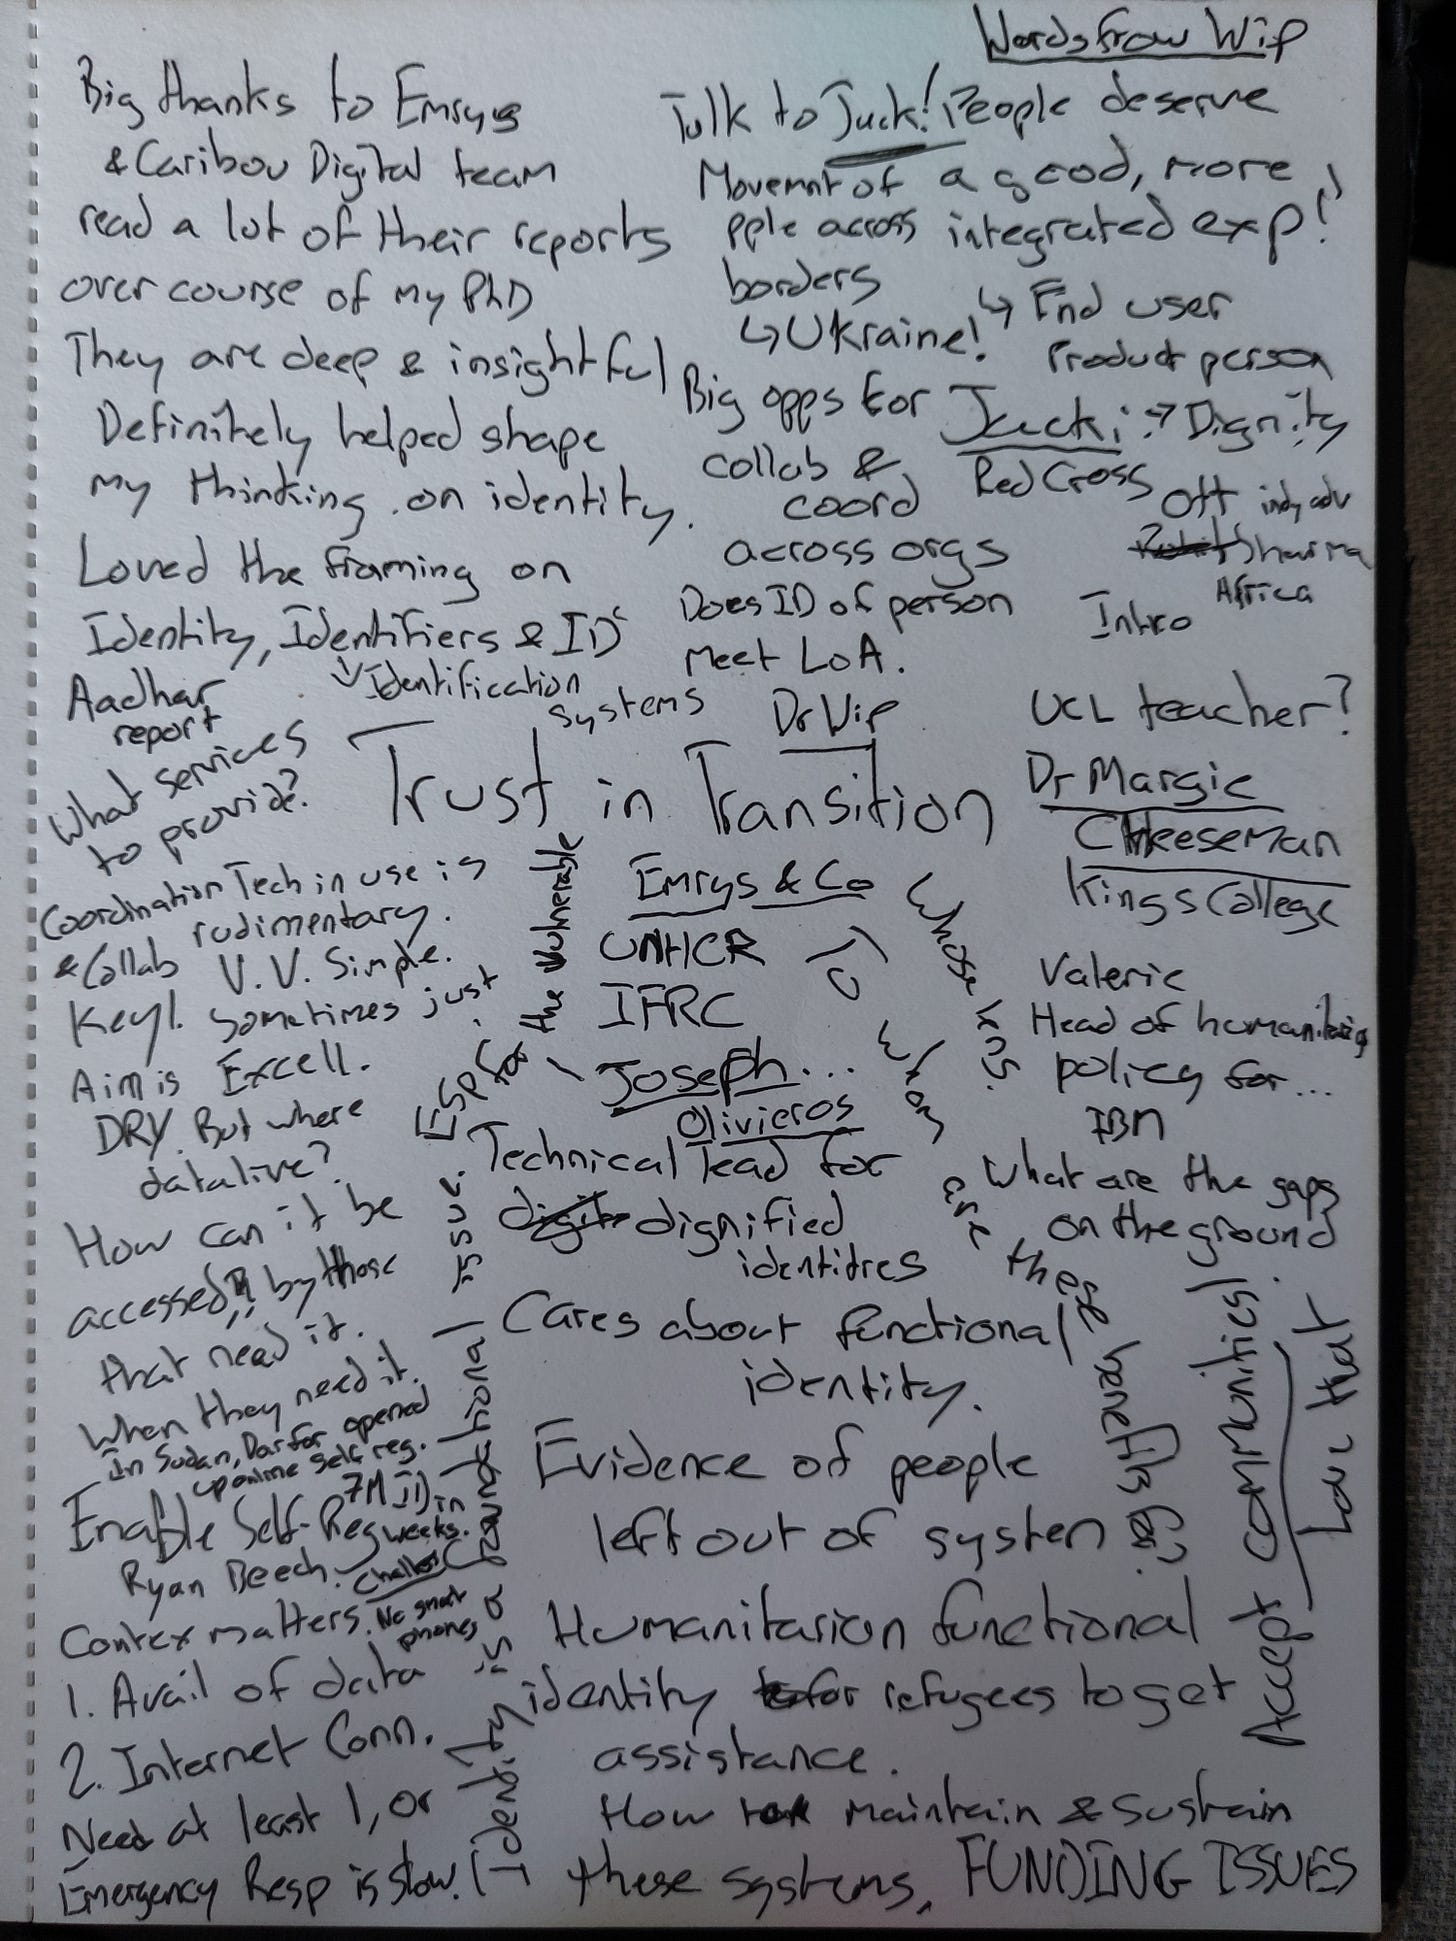 Words from Wip
Big thanks to Emrys
& Caribou Digital team
read a lot of their reports
over course of my PhD
They are deep & insightful
Definitely helped shape
my thinking on identity.
Loved the framing on
Identity, Identifiers & IDs
↳ Identification
systems
Aadhar
report
What services
to provide?
Talk to Jack!
Movemnt of
pple across
borders
↳ Ukraine!
Big opps for
collab &
coord
across orgs
Does ID of person
meet LoA.
People deserve
a good, more
integrated exp!
↳ End user
Product person
Jacki → Dignity
Red Cross
Off indy adv
Sharma
Africa
Intro
Dr Wip
Trust in Transition
UCL teacher?
Dr Margie
Cheeseman
Kings College
Valerie
Head of humanitarian
policy for...
IBM
What are the gaps
on the ground
Coordination Tech in use is
& Collab rudimentary.
V. V. Simple.
Key1. sometimes just
Aim is Excell.
DRY. But where
data live?
How can it be
accessed by those
that need it.
When they need it.
In Sudan, Darfor opened
up online self reg.
7M ID in
weeks.
Enable Self-Reg
Ryan Beech.
Challes
No smart
phones
Contex matters.
1. Avail of data
2. Internet Conn.
Need at least 1, or
Emergency Resp is slow.
Identity is a foundational
issue.
Esp for the vulnerable
Emrys & Co
UNHCR
IFRC
Joseph...
Olivieros
Technical lead for
dignified
identitres
Cares about functional
identity.
Evidence of people
left out of system
Humanitarian functional
identity for refugees to get
assistance.
How maintain & sustain
these systems, FUNDING ISSUES
Whose lens.
To whom are these beneficial
Accept communities!
Low that